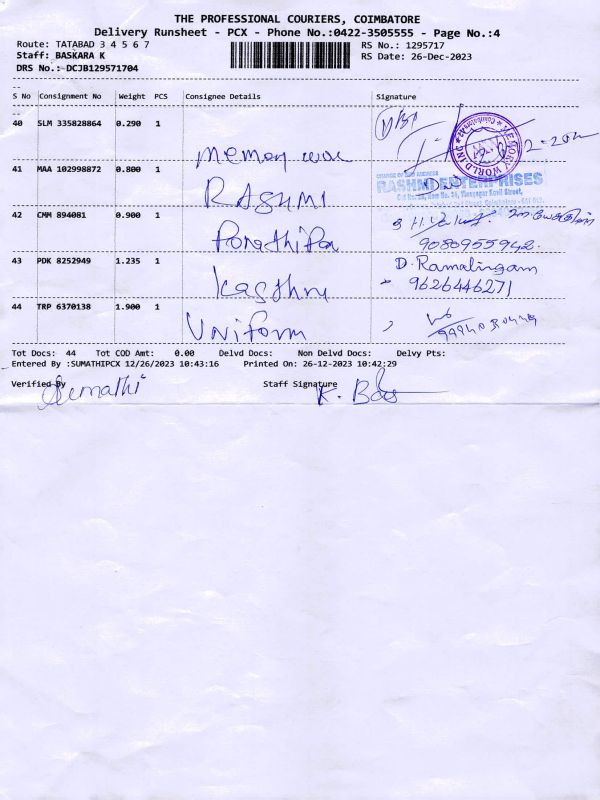 THE PROFESSIONAL COURIERS, COIMBATORE
Delivery Runsheet - PCX - Phone No.:0422-3505555 - Page No.:4
Route: TATABAD 3 4 5 6 7
RS No.: 1295717
Staff: BASKARA K
RS Date: 26-Dec-2023
DRS No.: DCJB129571704
S No Consignment No Weight PCS Consignee Details Signature
40 SLM 335828864 0.290 1
MEMORY WORLD INDIA
Memory
41 MAA 102998872 0.800 1
RASHMI ENTERPRISES
RASHMI
42 CMM 894081 0.900 1
9080955942.
43 PDK 8252949 1.235 1
D. Ramalingam
9626446271
44 TRP 6370138 1.900 1
Uniform
Tot Docs: 44 Tot COD Amt: 0.00 Delvd Docs: Non Delvd Docs: Delvy Pts:
Entered By :SUMATHIPCX 12/26/2023 10:43:16 Printed On: 26-12-2023 10:42:29
Verified By Sumathi Staff Signature K.